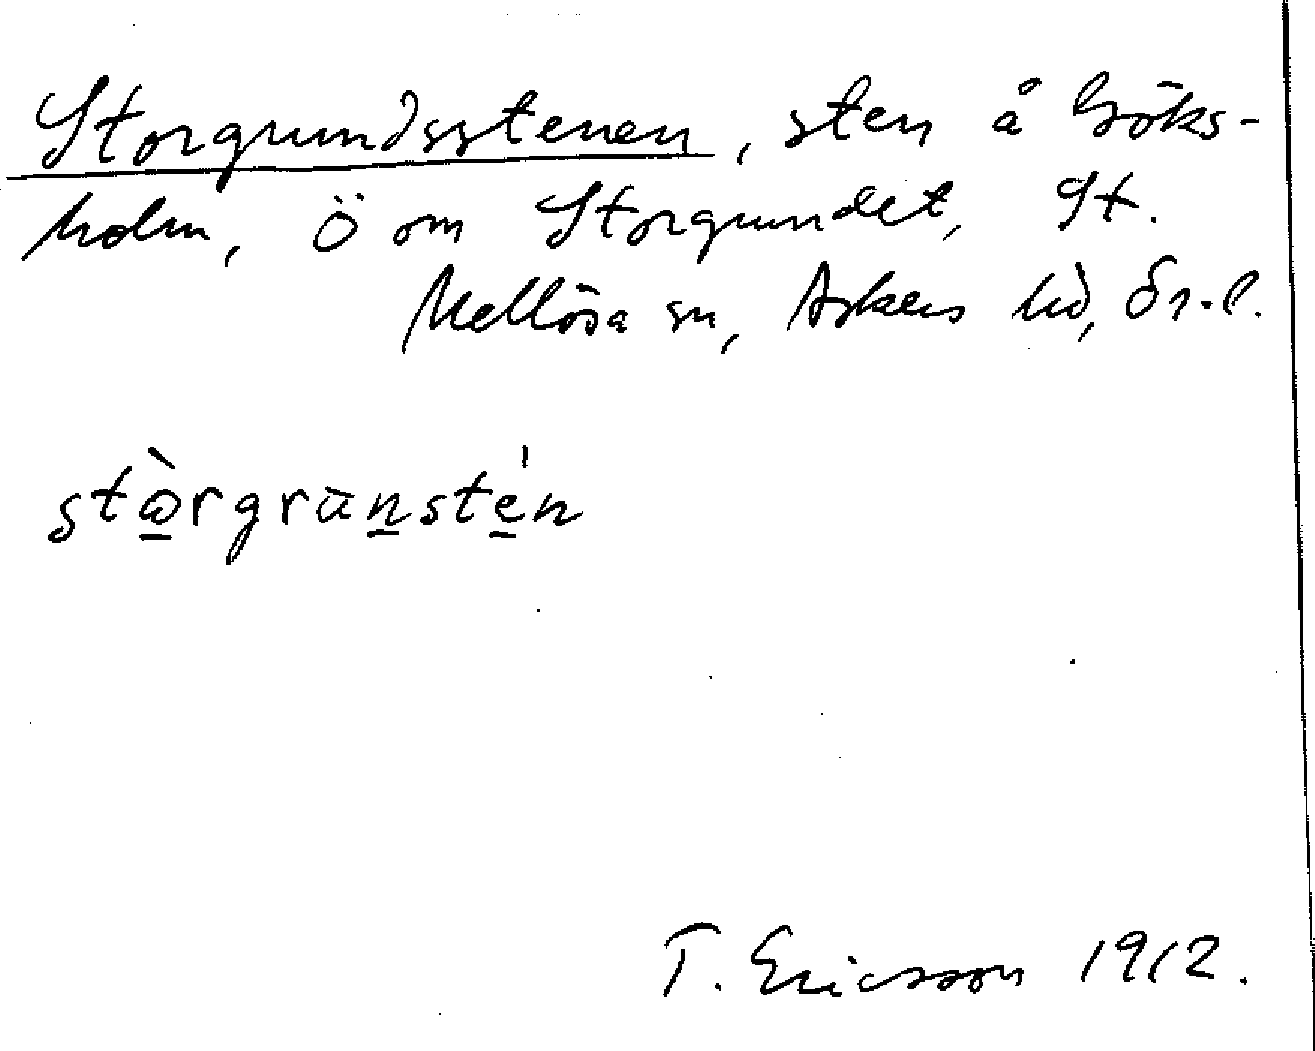 Storgrundsstenen, sten å Göks-
holm, Ö om Storgrundet, St.
Mellösa sn, Askers hd, Ör.l.
stòrgrānstén
T. Ericsson 1912.